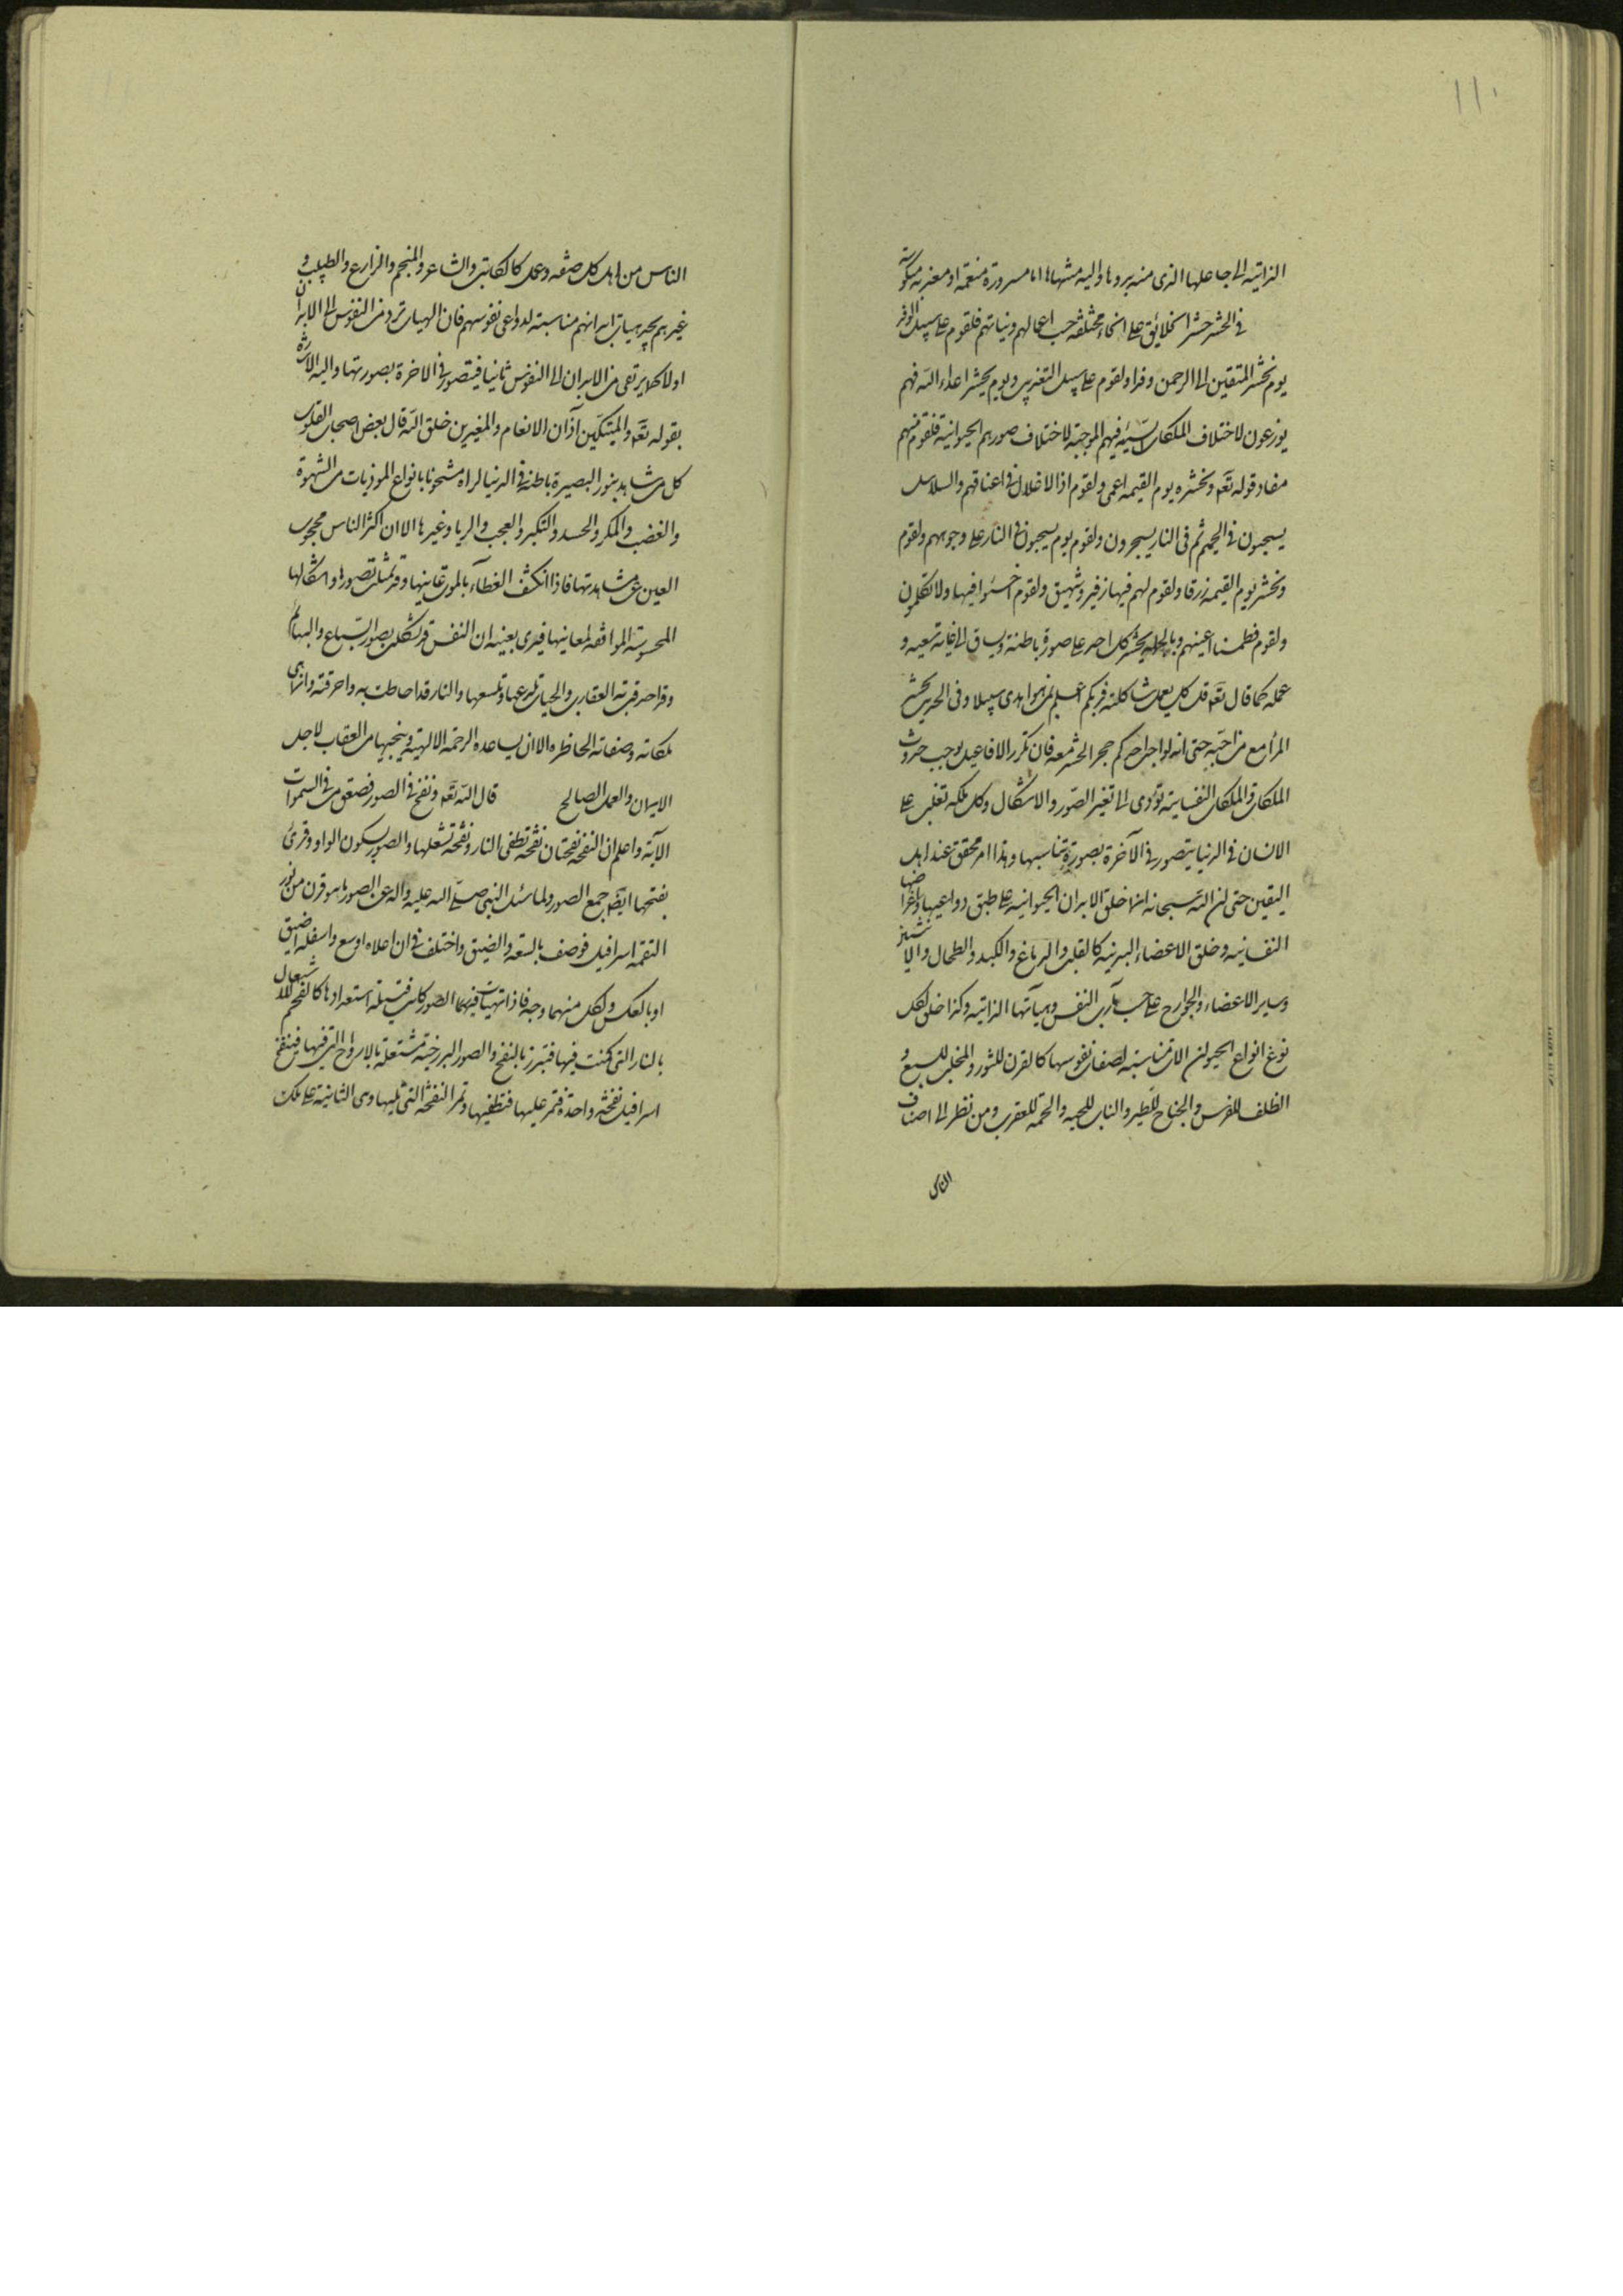 ١١٠
الذاتية الى جاعلها الذي منه بدوها واليه منتهاها اما مسرورة منعمة او معذبة منكوسة
في الحشر حشر الخلائق على انحاء مختلفة حسب اعمالهم ونياتهم فلقوم على سبيل الوفد
يوم نحشر المتقين الى الرحمن وفدا ولقوم على سبيل التعذيب ويوم يحشر اعداء الله فهم
يوزعون لاختلاف الملكات السيئة فيهم الموجبة لاختلاف صورهم الحيوانية فلقوم منهم
مفاد قوله تعه ونحشره يوم القيمة اعمى ولقوم اذ الاغلال في اعناقهم والسلاسل
يسحبون في الحميم ثم في النار يسجرون ولقوم يوم يسحبون في النار على وجوههم ولقوم
ونحشر يوم القيمة زرقا ولقوم لهم فيها زفير وشهيق ولقوم اخسئوا فيها ولا تكلمون
ولقوم فطمسنا اعينهم وبالجملة يحشر كل احد على صورة باطنة ويساق الى غاية سعيه و
عمله كما قال تعه قل كل يعمل على شاكلته فربكم اعلم بمن هو اهدى سبيلا وفي الحديث يحشر
المرأ مع من احبه حتى انه لو احب احدكم حجر الحشر معه فان تكرر الافاعيل يوجب حدوث
الملكات والملكات النفسانية تؤدى الى تغير الصور والاشكال وكل ملكة تغلب على
الانسان في الدنيا يتصور في الآخرة بصورة تناسبها وهذا امر محقق عند اهل
اليقين حتى ان الله سبحانه انما خلق الابدان الحيوانية على طبق دواعيها واغراضها
النفسانية وخلق الاعضاء البدنية كالقلب والدماغ والكبد والطحال والانثيين
وساير الاعضاء والجوارح على حسب مآرب النفس وهيآتها الذاتية وكذا خلق لكل
نوع انواع الحيوان الات مناسبة لصفات نفوسها كالقرن للثور والمخلب للسبع و
الظلف للفرس والجناح للطير والناب للحية والحمة للعقرب ومن نظر الى اصناف
الناس
الناس من اهل كل صنعة وعمل كالكاتب والشاعر والمنجم والزارع والطبيب و
غيرهم يجد هيات ابدانهم مناسبة لدواعى نفوسهم فان الهيات ترد من النفوس الى الابدان
اولا كما يرتقى من الابدان الى النفوس ثانيا فيتصور في الاخرة بصورتها واليه الاشارة
بقوله تعه وليبتكن آذان الانعام وليغيرن خلق الله قال بعض اصحاب القلوب
كل من شاهد بنور البصيرة باطنه في الدنيا لراه مشحونا بانواع الموذيات من الشهوة
والغضب والمكر والحسد والتكبر والعجب والريا وغيرها الا ان اكثر الناس محجوب
العين عن مشاهدتها فاذا انكشف الغطاء بالموت عاينها وقد تمثلت بصورها واشكالها
المحسوسة الموافقة لمعانيها فيرى بعينه ان النفس قد تشكلت بصور السباع والبهائم
وقد احدقت به العقارب والحيات تلدغها وتلسعها والنار قد احاطت به واحرقته وانما هي
ملكاته وصفاته الحاظره الا ان يساعده الرحمة الالهية وينجيها من العقاب لاجل
الايمان والعمل الصالح قال الله تعه ونفخ في الصور فصعق من في السموات
الآية واعلم ان النفخة نفختان نفخة تطفى النار ونفخة تشعلها والصور بسكون الواو وقرئ
بفتحها ايضا جمع الصور ولما سئل النبى صلى الله عليه واله عن الصور ما هو قرن من نور
التقمه اسرافيل فوصف بالسعة والضيق واختلف في ان اعلاه اوسع واسفله اضيق
او بالعكس ولكل منهما وجه فاذا تهيات فيهما الصور كانت فتيلة استعدادها كالفحم للاشتعال
بالنار التى كمنت فيها فتبرز بالنفخ والصور البرزخية مشتعلة بالارواح التى فيها فينفخ
اسرافيل نفخة واحدة فتمر عليها فتطفيها وتمر النفخة التى تليها وهى الثانية على تلك